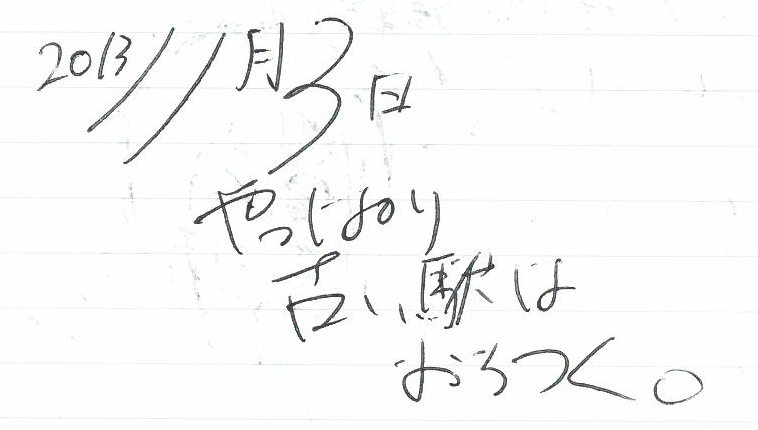 2013/1月3日
やっぱり
古い駅は
おちつく。